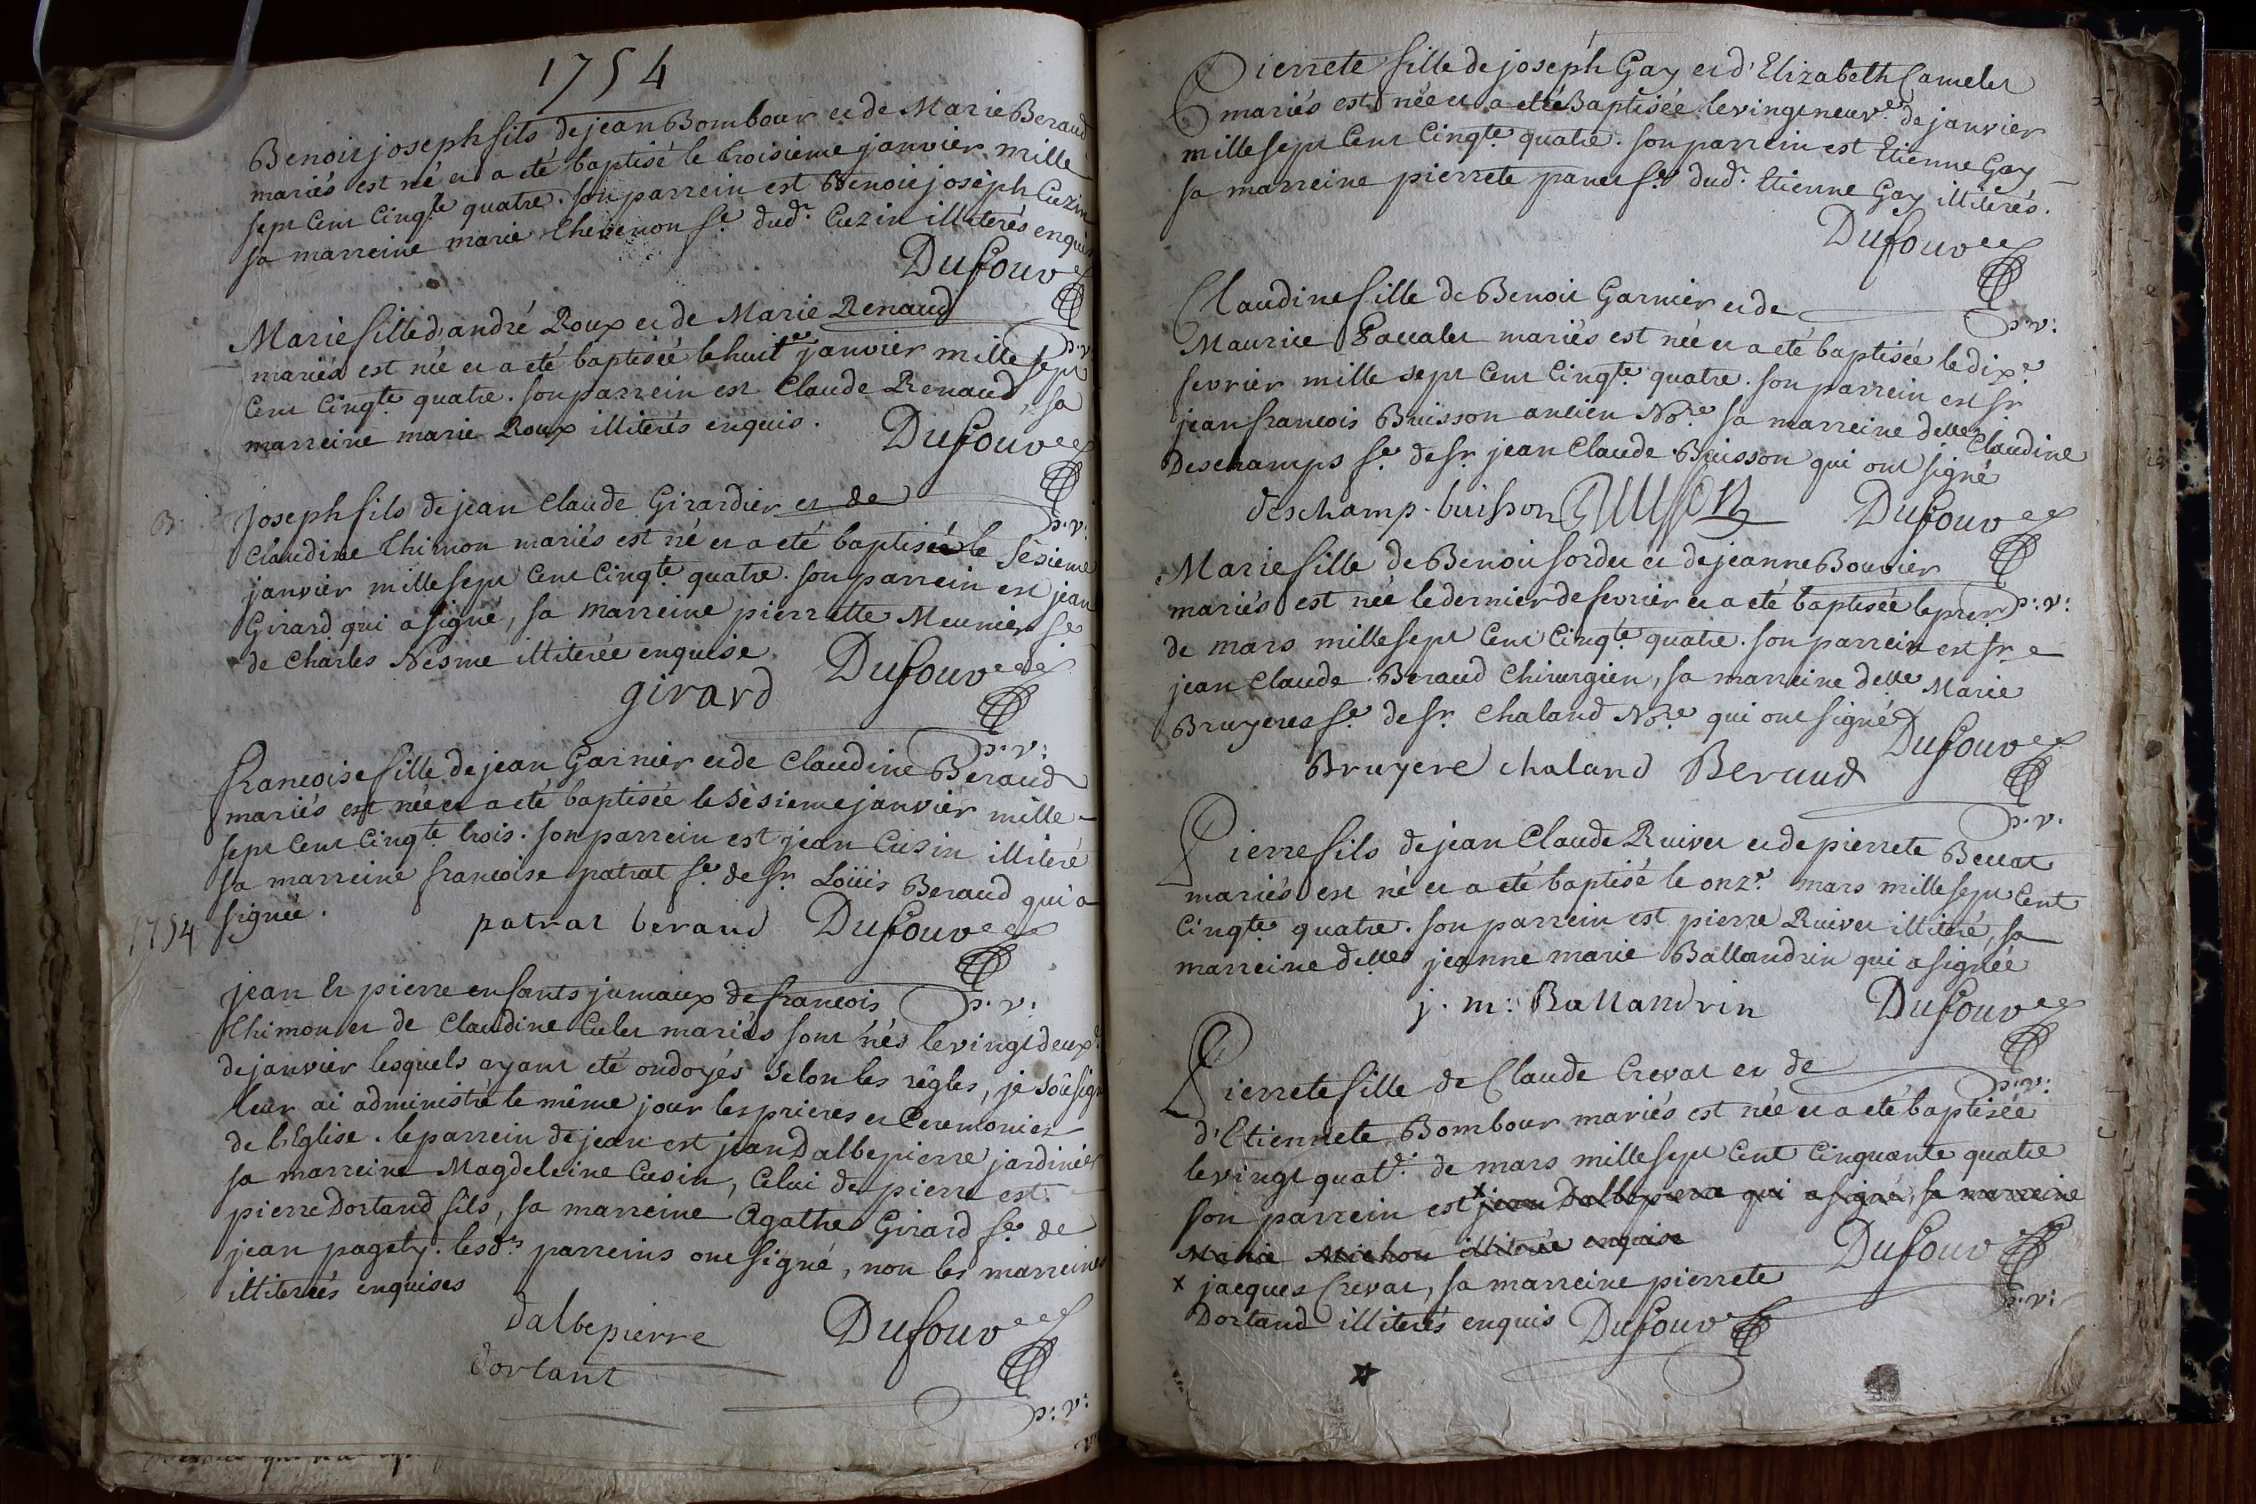 1754
Benoit joseph fils de jean Bombour et de Marie Beraud
mariés est né et a eté baptisé le troisieme janvier mille
sept Cent Cinqte quatre. son parrein est Benoit joseph Cuzin
sa marreine marie Chevenon fe dudt Cuzin illiterés enquis
Dufour
Marie fille d'andré Roux et de Marie Renaud
p. v:
mariés est née et a eté baptisée le huite janvier mille sept
Cent Cinqte quatre. son parrein est Claude Renaud, sa
marreine marie Roux illiterés enquis.
Dufour
joseph fils de jean Claude Girardier et de
p. v:
Claudine Thimon mariés est né et a eté baptisé le sésieme
janvier mille sept Cent Cinqte quatre. son parrein est jean
Girard qui a signé, sa marreine pierrette Meunier fe
de Charles Nesme illiterée enquise.
girard Dufour
p. v:
francoise fille de jean Garnier et de Claudine Beraud
mariés est née et a eté baptisée le sésieme janvier mille
sept Cent Cinqte trois. son parrein est jean Cusin illiteré
sa marreine francoise patrat fe de sr Loüis Beraud qui a
signée.
1754
patrat beraud Dufour
p. v:
jean et pierre enfants jumaux de francois
Thimon et de Claudine Culet mariés sont nés le vingt deuxe
de janvier lesquels ayant eté ondoyés selon les régles, je soüsigné
leur ai administré le même jour les prieres et Ceremonies
de l'Eglise. le parrein de jean est jean Dalbepierre jardinier
sa marreine Magdeleine Cusin, Celui de pierre est
pierre Dortand fils, sa marreine Agathe Girard fe de
jean pagety. lesds parreins ont signé, non les marreines
illiterées enquises
dalbepierre Dufour
dortant
p: v:
Pierrete fille de joseph Gay et d'Elizabeth Camelet
mariés est née et a eté Baptisée le vingt neuve de janvier
mille sept Cent Cinqte quatre. son parrein est Etienne Gay
sa marreine pierrete panet fe dudt Etienne Gay illiterés.
Dufour
p. v:
Claudine fille de Benoit Garnier et de
Maurice Paccalet mariés est née et a eté baptisée le dixe
fevrier mille sept Cent Cinqte quatre. son parrein est sr
jean francois Buisson ancien Nore sa marreine delle Claudine
Deschamps fe de sr jean Claude Buisson qui ont signé
deschamp-buisson Buisson Dufour
Marie fille de Benoit sordet et de jeanne Bouvier
p. v:
mariés est née le dernier de fevrier et a eté baptisée le premr
de mars mille sept Cent Cinqte quatre. son parrein est sr
jean Claude Beraud Chirurgien, sa marreine delle Marie
Bruyeres fe de sr Chaland Nore qui ont signé
Dufour
Bruyere chaland Beraud
p. v.
Pierre fils de jean Claude Ruivet et de pierrete Bettat
mariés est né et a eté baptisé le onze mars mille sept Cent
Cinqte quatre. son parrein est pierre Ruivet illiteré, sa
marreine delle jeanne marie Ballandrin qui a signée
j. m: Ballandrin Dufour
p. v:
Pierrete fille de Claude Crevat et de
d'Etiennete Bombour mariés est née et a eté baptisée
le vingt quate de mars mille sept Cent Cinquante quatre
son parrein est x jean Dalbepierre qui a signé, sa marreine
Marie Michon illiterée enquise
Dufour
x jacques Crevat, sa marreine pierrete
p. v:
Dortand illiterés enquis Dufour